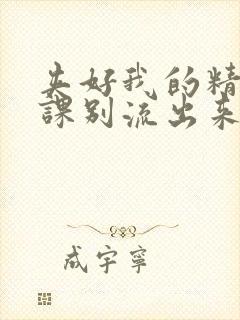 夹好我的精
課别流出来
成宇寧